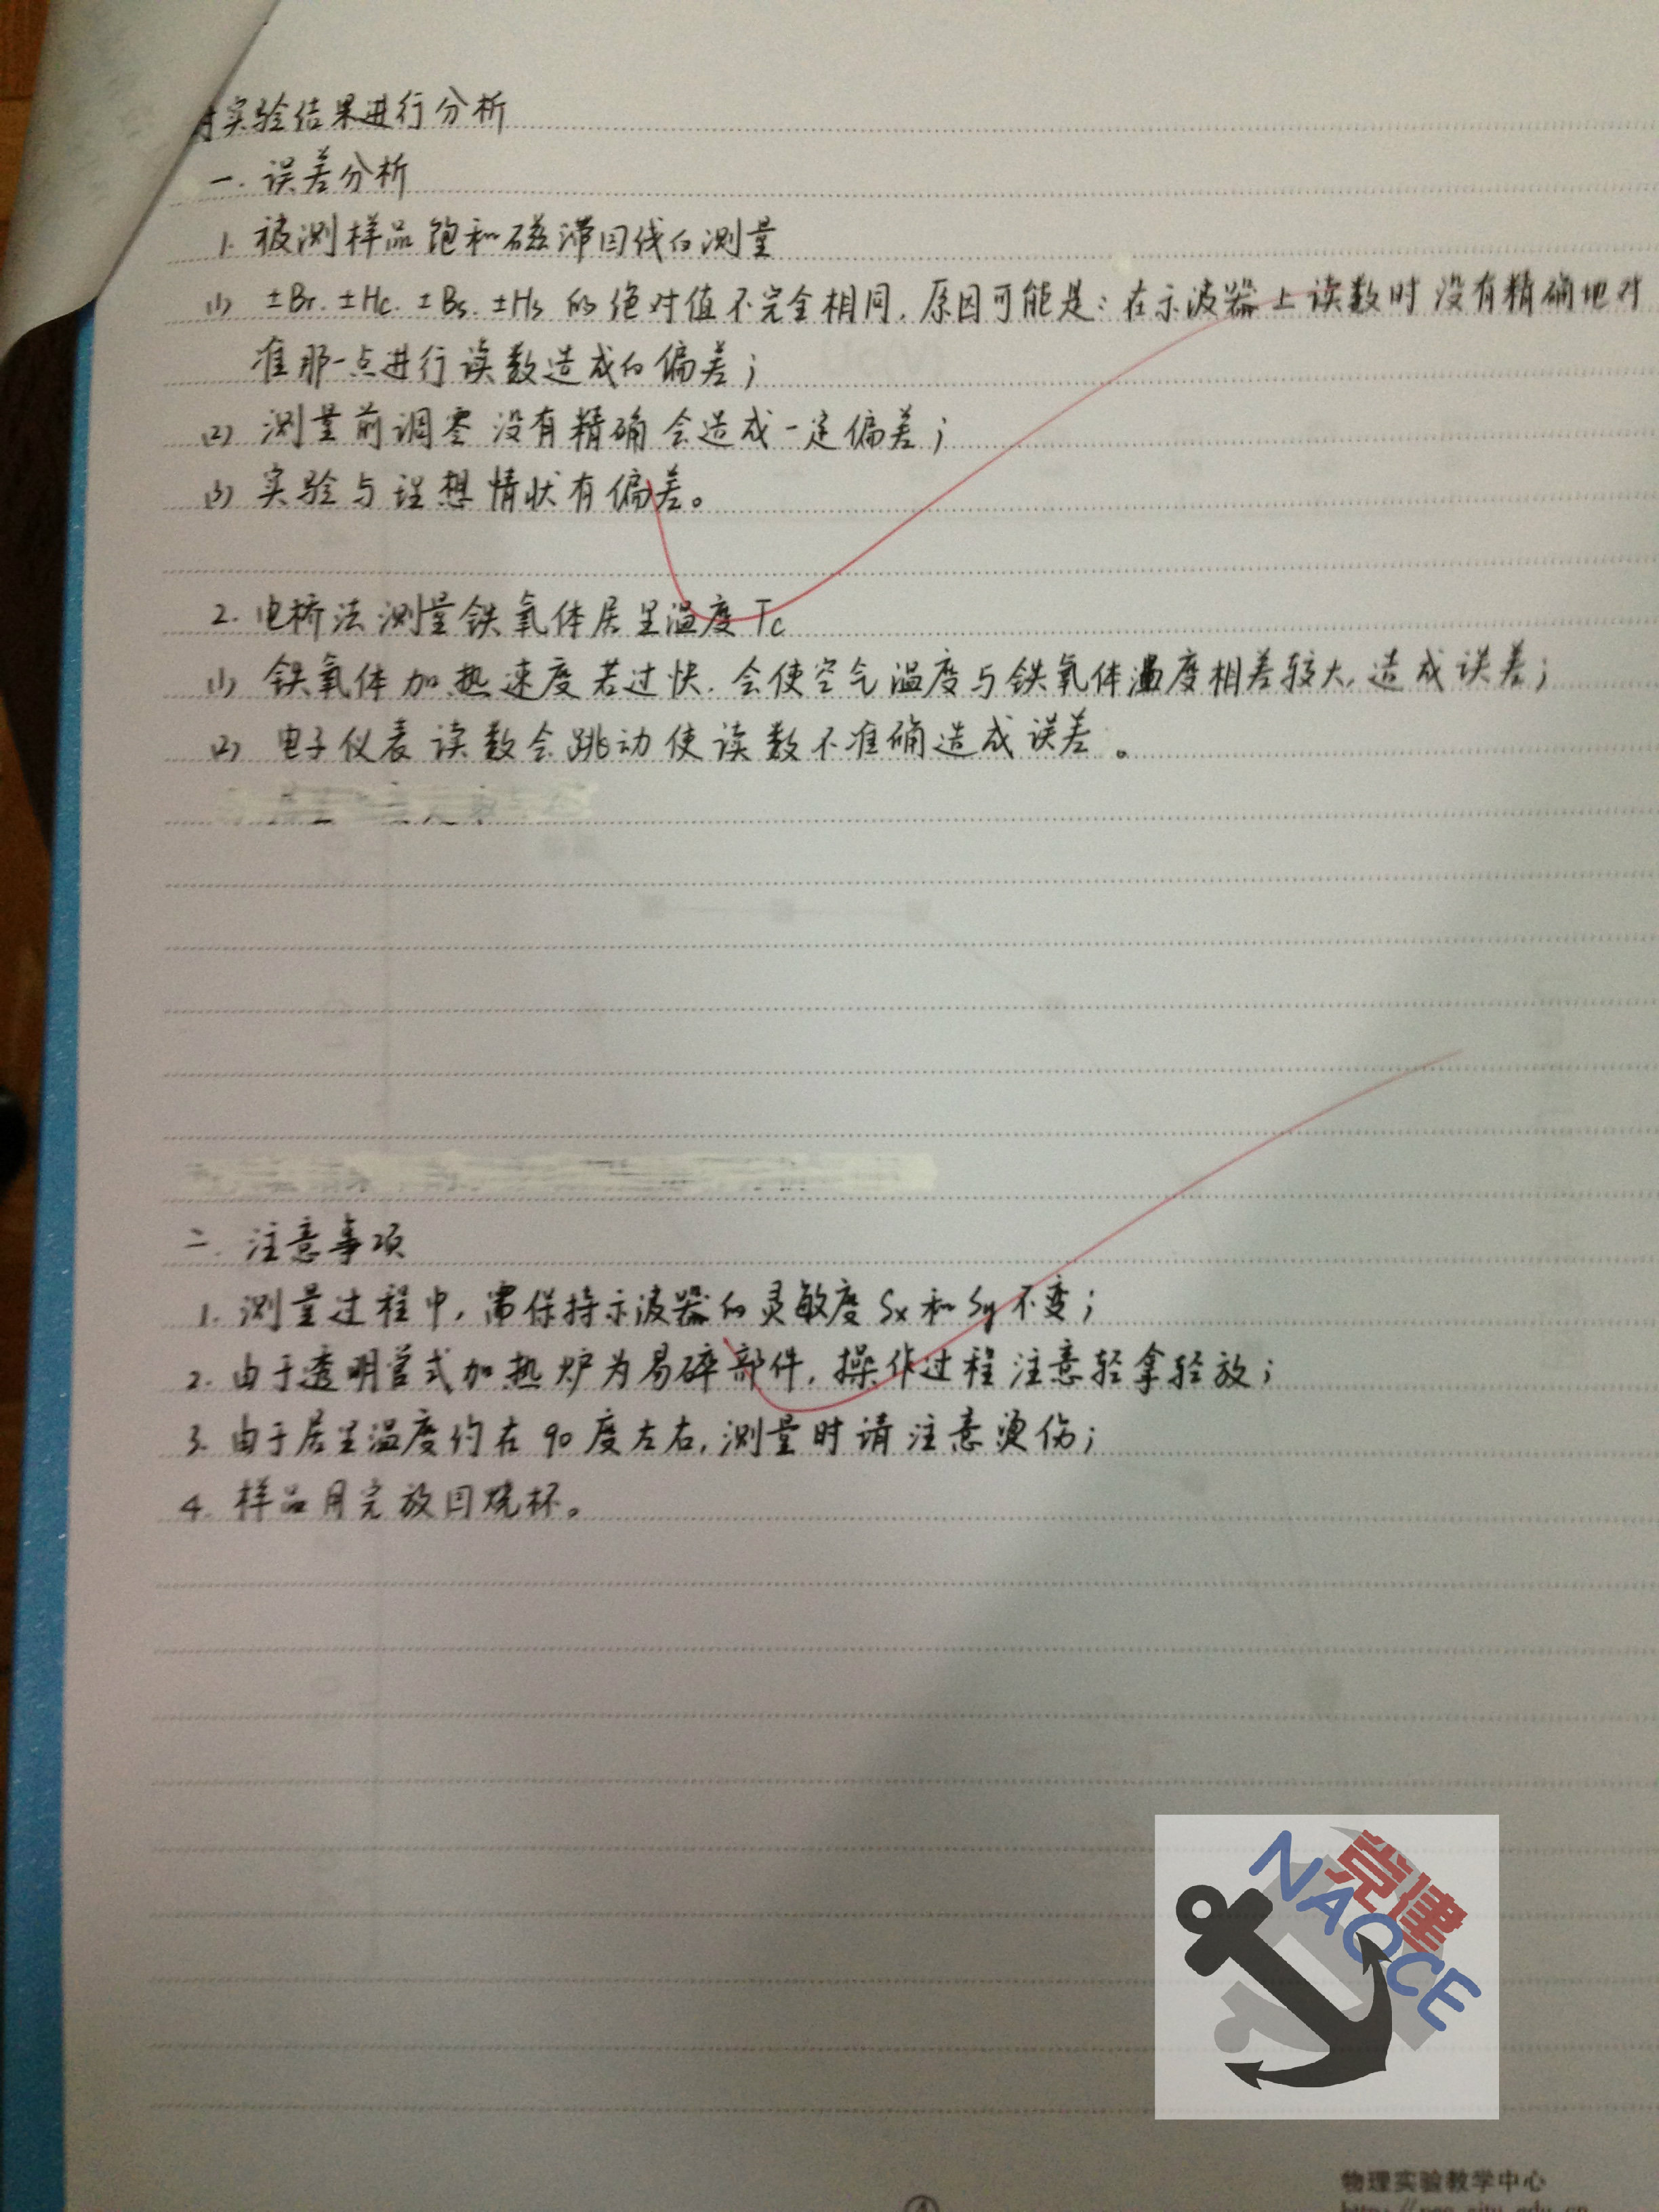 对实验结果进行分析
一. 误差分析
1. 被测样品饱和磁滞回线的测量
(1) ±Br. ±Hc. ±Bs. ±Hs 的绝对值不完全相同, 原因可能是: 在示波器上读数时没有精确地对
准那一点进行读数造成的偏差;
(2) 测量前调零没有精确会造成一定偏差;
(3) 实验与理想情状有偏差。
2. 电桥法测量铁氧体居里温度 Tc
(1) 铁氧体加热速度若过快, 会使空气温度与铁氧体温度相差较大, 造成误差;
(2) 电子仪表读数会跳动使读数不准确造成误差。
二. 注意事项
1. 测量过程中, 需保持示波器的灵敏度 Sx 和 Sy 不变;
2. 由于透明管式加热炉为易碎部件, 操作过程注意轻拿轻放;
3. 由于居里温度约在 90 度左右, 测量时请注意烫伤;
4. 样品用完放回烧杯。
党建
NAOCE
物理实验教学中心
4